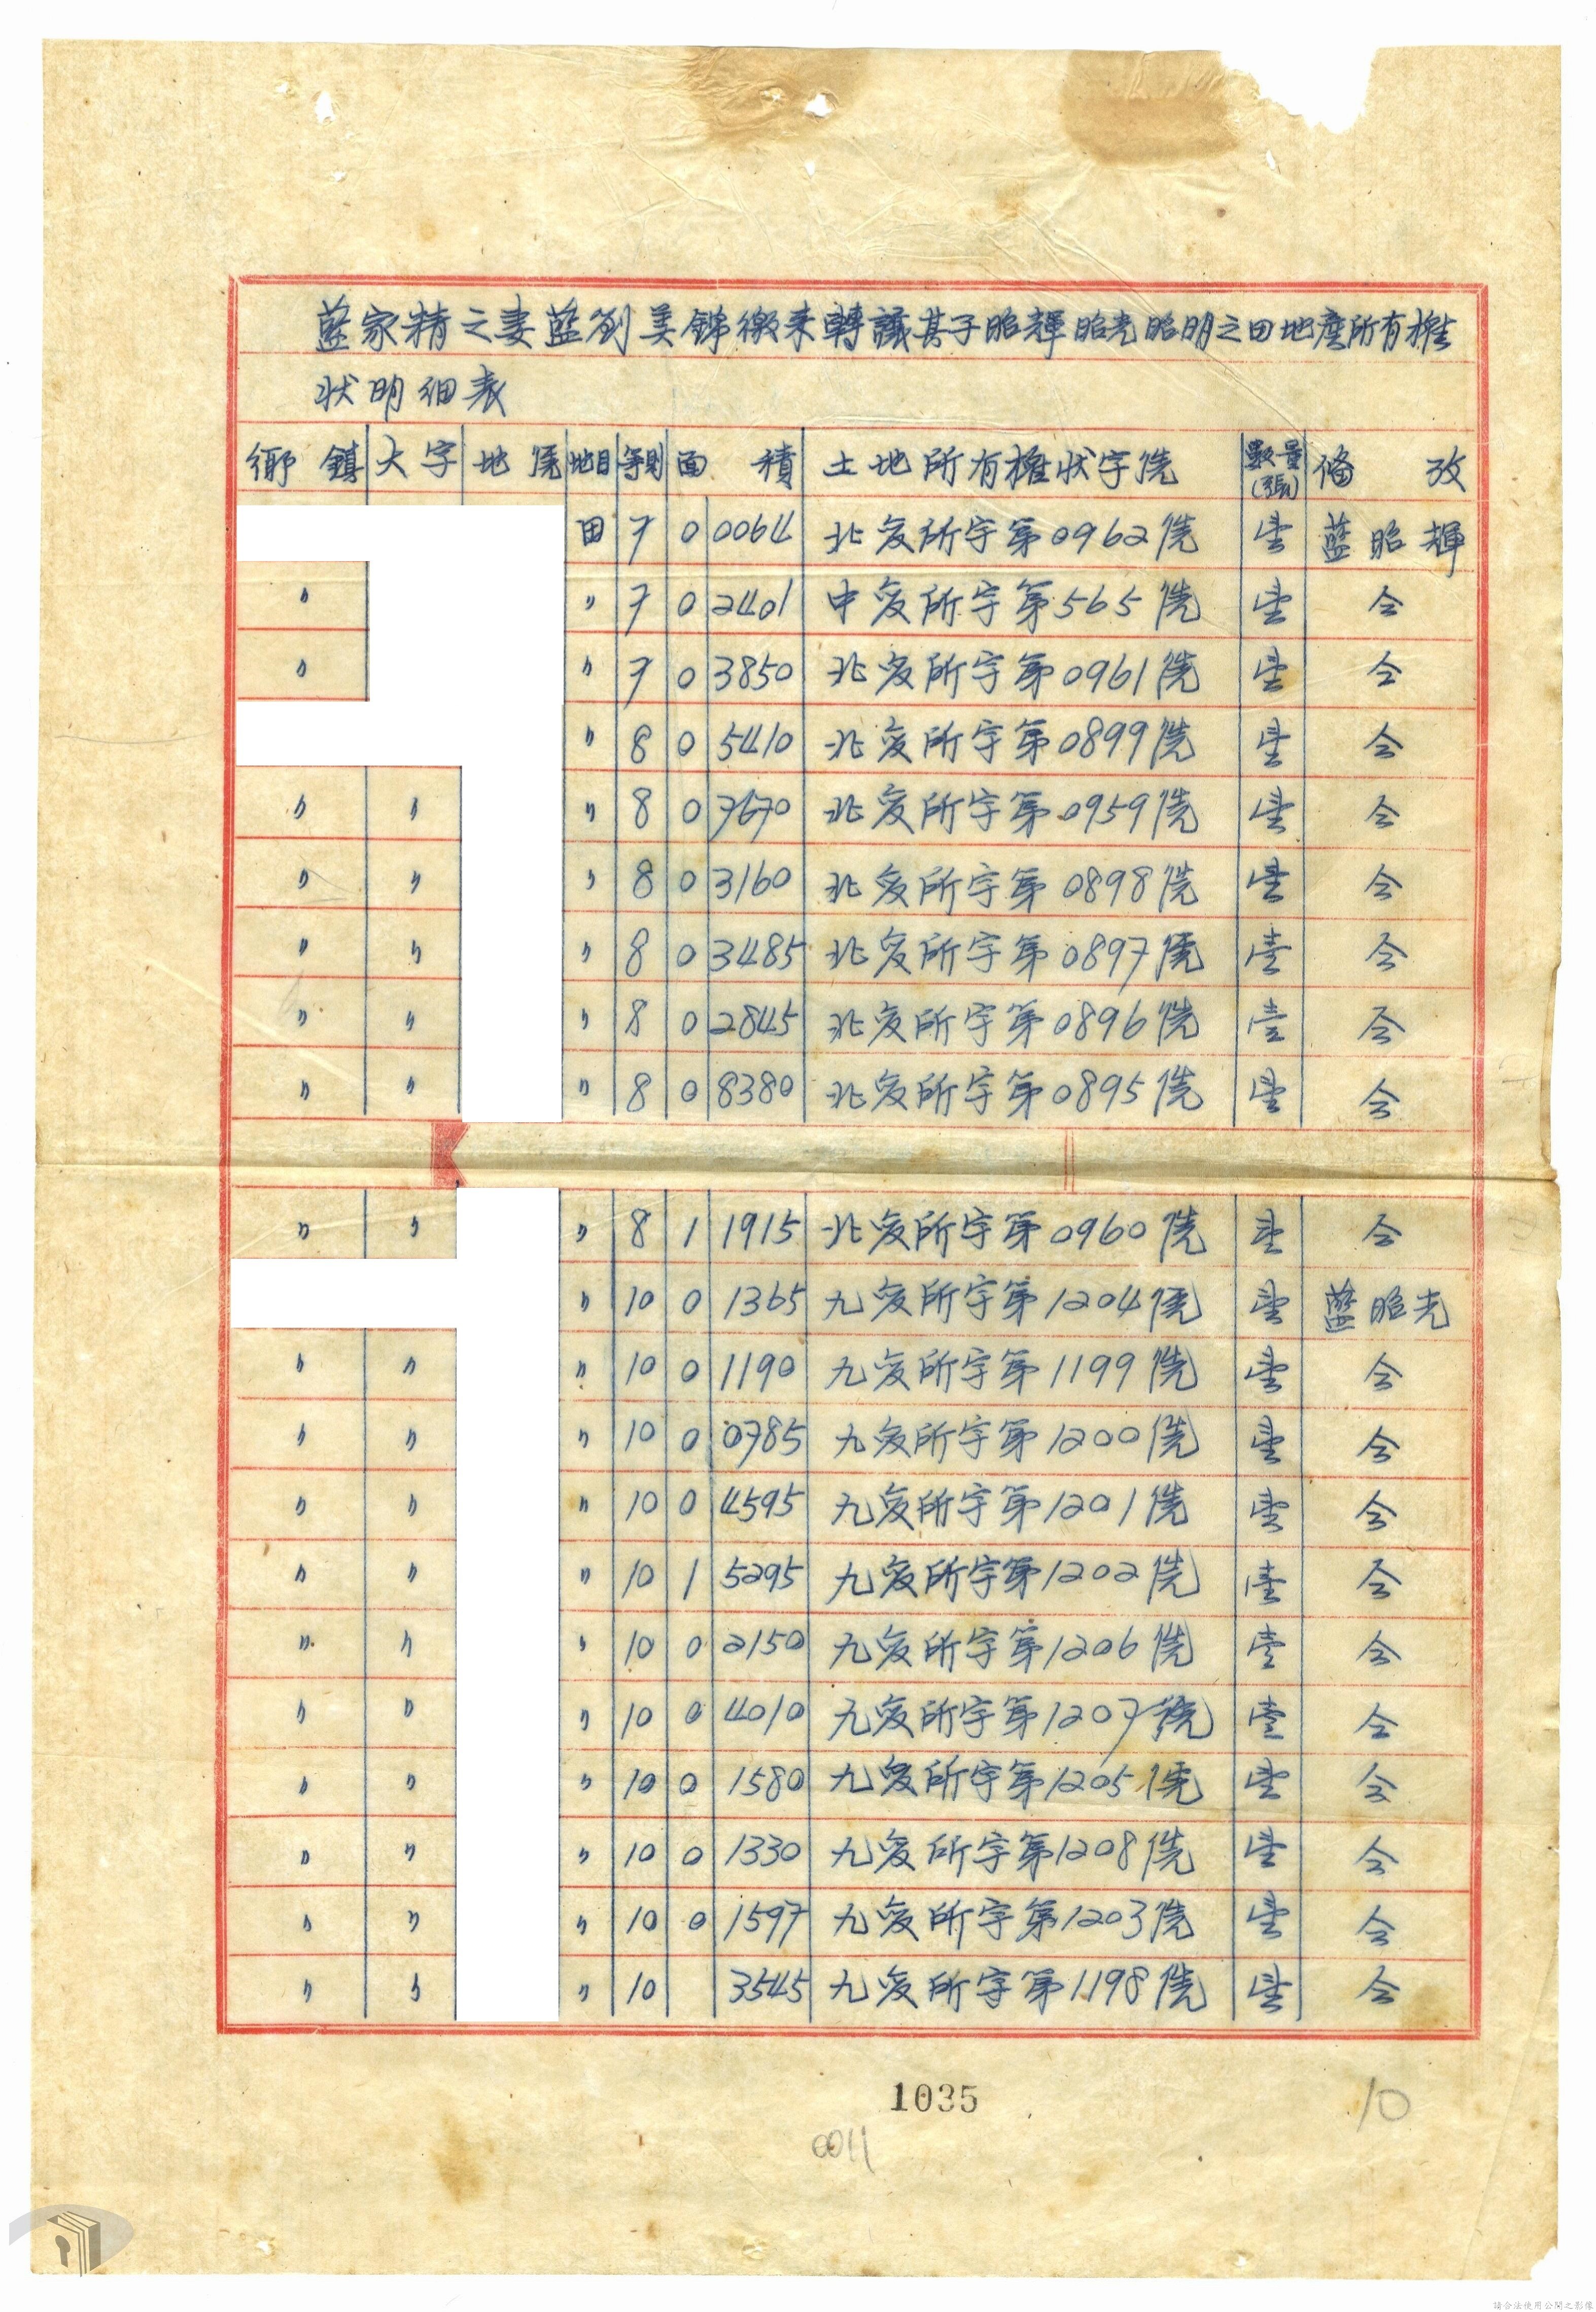 藍家精之妻藍劉美錦繳來轉讓其子昭輝昭光昭明之田地產所有權
狀明細表
鄉鎮 大字 地號 地目 等則 面積 土地所有權狀字號 數量(張) 備攷
田 7 0 0064 北變所字第0962號 壹 藍昭輝
〃 〃 7 0 2401 中變所字第565號 壹 仝
〃 〃 7 0 3850 北變所字第0961號 壹 仝
〃 8 0 5410 北變所字第0899號 壹 仝
〃 〃 〃 8 0 7670 北變所字第0959號 壹 仝
〃 〃 〃 8 0 3160 北變所字第0898號 壹 仝
〃 〃 〃 8 0 3485 北變所字第0897號 壹 仝
〃 〃 〃 8 0 2845 北變所字第0896號 壹 仝
〃 〃 〃 8 0 8380 北變所字第0895號 壹 仝
〃 〃 〃 8 1 1915 北變所字第0960號 壹 仝
〃 10 0 1365 九變所字第1204號 壹 藍昭光
〃 〃 〃 10 0 1190 九變所字第1199號 壹 仝
〃 〃 〃 10 0 0785 九變所字第1200號 壹 仝
〃 〃 〃 10 0 4595 九變所字第1201號 壹 仝
〃 〃 〃 10 1 5295 九變所字第1202號 壹 仝
〃 〃 〃 10 0 2150 九變所字第1206號 壹 仝
〃 〃 〃 10 0 4010 九變所字第1207號 壹 仝
〃 〃 〃 10 0 1580 九變所字第1205號 壹 仝
〃 〃 〃 10 0 1330 九變所字第1208號 壹 仝
〃 〃 〃 10 0 1597 九變所字第1203號 壹 仝
〃 〃 〃 10 3545 九變所字第1198號 壹 仝
1035
10
0011
請合法使用公開之影像